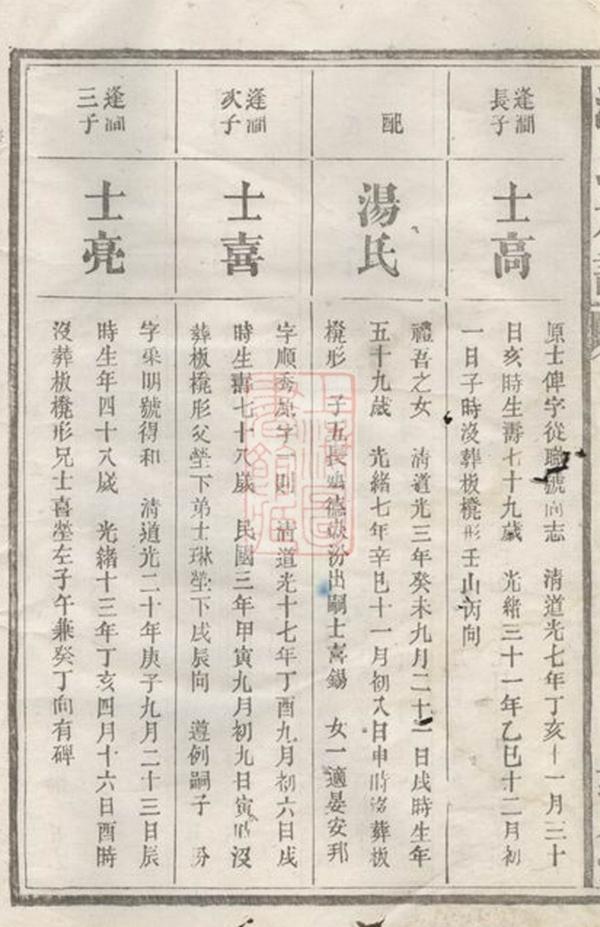 逢澗
長子
士高
原士俾字從聰號向志 清道光七年丁亥十一月三十
日亥時生壽七十九歲 光緒三十一年乙巳十二月初
一日子時沒葬板櫈形壬山丙向
配
湯氏
禮吾之女 清道光三年癸未九月二十一日戌時生年
五十九歲 光緒七年辛巳十一月初八日申時沒葬板
櫈形 子五長 德 汾出嗣士喜錫 女一適晏安邦
逢澗
次子
士喜
字順秀 字一則 清道光十七年丁酉九月初六日戌
時生壽七十八歲 民國三年甲寅九月初九日寅時沒
葬板櫈形父塋下弟士琳塋下戌辰向 遵例嗣子 汾
逢澗
三子
士亮
字乘明號得和 清道光二十年庚子九月二十三日辰
時生年四十八歲 光緒十三年丁亥四月十六日酉時
沒葬板櫈形兄士喜塋左子午兼癸丁向有碑